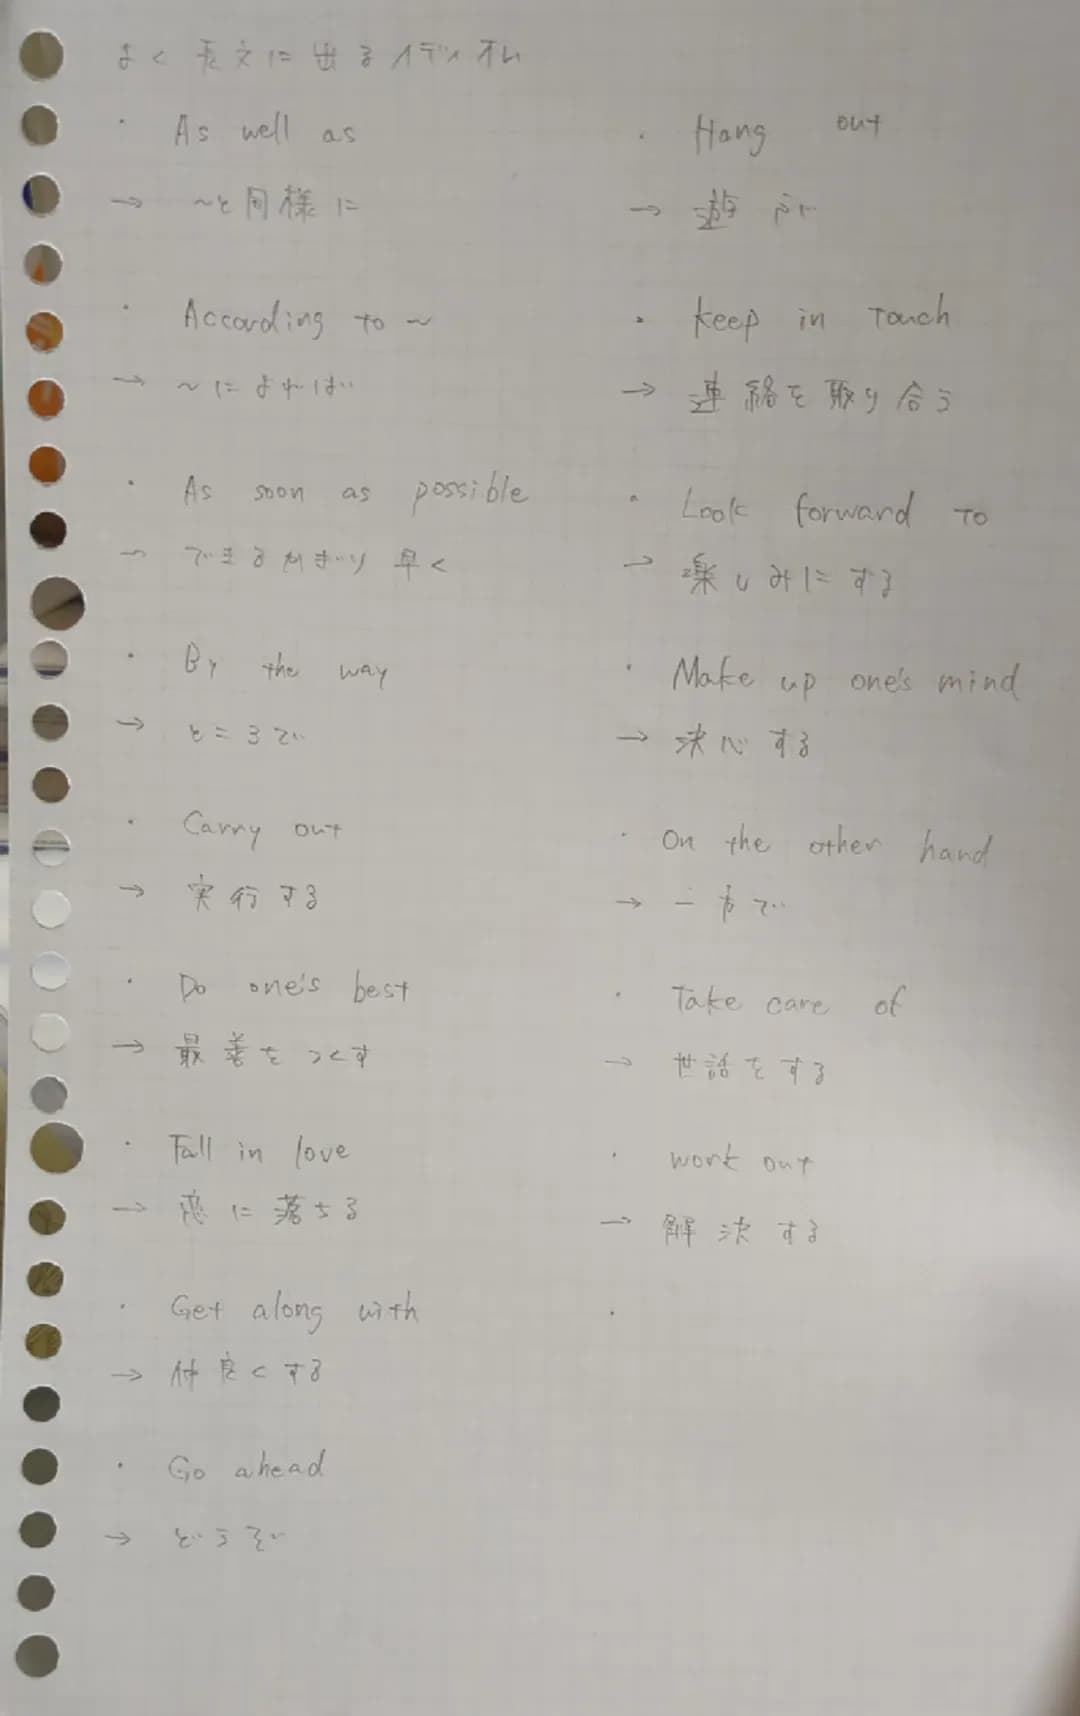 よく長文に出るイディオム
・ As well as
→ ～と同様に
・ According to ～
→ ～によれば
・ As soon as possible
→ できるかぎり早く
・ By the way
→ ところで
・ Carry out
→ 実行する
・ Do one's best
→ 最善をつくす
・ Fall in love
→ 恋に落ちる
・ Get along with
→ 仲良くする
・ Go ahead
→ どうぞ
・ Hang out
→ 遊ぶ
・ keep in Touch
→ 連絡を取り合う
・ Look forward to
→ 楽しみにする
・ Make up one's mind
→ 決心する
・ On the other hand
→ 一方で
・ Take care of
→ 世話をする
・ work out
→ 解決する
・